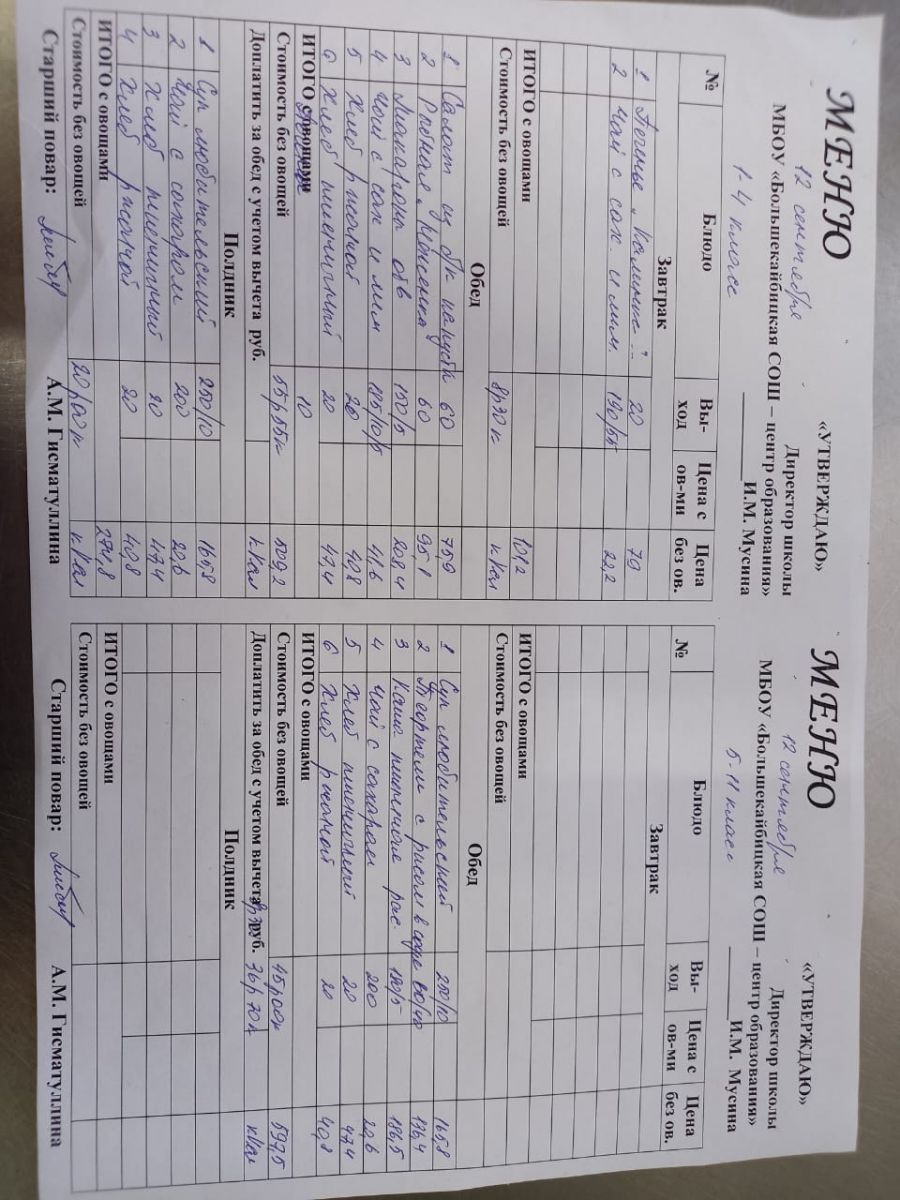 «УТВЕРЖДАЮ»
Директор школы
МБОУ «Большекайбицкая СОШ – центр образования»
И.М. Мусина
МЕНЮ
12 сентября
1-4 класс
№ Блюдо Вы-ход Цена с ов-ми Цена без ов.
Завтрак
1 Печенье 20 79
2 Чай с сах. и лим. 190/55 22,2
ИТОГО с овощами 101,2
Стоимость без овощей 8р30к ккал
Обед
1 Салат из бк капусты 60 75,9
2 60 95,1
3 Макароны отв 150/5 208,4
4 Чай с сах и лим 41,6
5 Хлеб ржаной 20 40,8
6 Хлеб пшеничный 20 47,4
ИТОГО с овощами 10
Стоимость без овощей 55р55к 509,2
Доплатить за обед с учетом вычета руб. ккал
Полдник
1 Суп любительский 250/10 165,8
2 Чай с сахаром 200 22,6
3 Хлеб пшеничный 20 47,4
4 Хлеб ржаной 20 40,8
ИТОГО с овощами 274,8
Стоимость без овощей 20р00к ккал
Старший повар: А.М. Гисматуллина
«УТВЕРЖДАЮ»
Директор школы
МБОУ «Большекайбицкая СОШ – центр образования»
И.М. Мусина
МЕНЮ
12 сентября
5-11 класс
№ Блюдо Вы-ход Цена с ов-ми Цена без ов.
Завтрак
ИТОГО с овощами
Стоимость без овощей
Обед
1 Суп любительский 250/10 165,8
2 с рисом в соусе 80/40 136,4
3 Каша пшенная рас. 180/5 186,5
4 Чай с сахаром 200 22,6
5 Хлеб пшеничный 20 47,4
6 Хлеб ржаной 20 40,8
ИТОГО с овощами
Стоимость без овощей 45р00к 597,5
Доплатить за обед с учетом вычета руб. 36р70к ккал
Полдник
ИТОГО с овощами
Стоимость без овощей
Старший повар: А.М. Гисматуллина